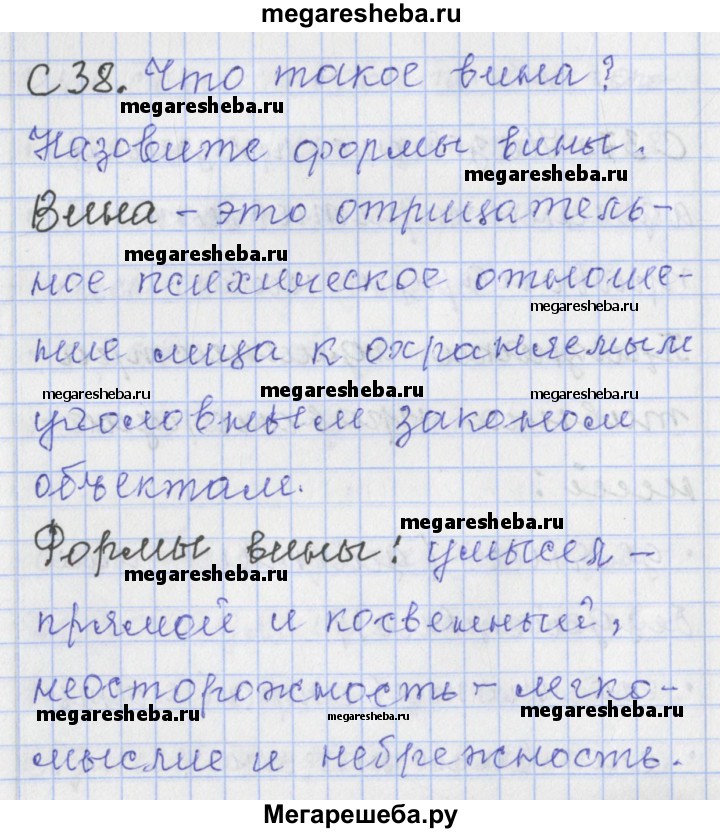 megaresheba.ru
С38. Что такое вина?
megaresheba.ru
Назовите формы вины.
megaresheba.ru
Вина - это отрицатель-
megaresheba.ru
ное психическое отноше-
megaresheba.ru
ние лица к охраняемым
megaresheba.ru megaresheba.ru megaresheba.ru
уголовным законом
объектам.
megaresheba.ru
Формы вины: умысел -
megaresheba.ru
прямой и косвенный,
неосторожность - легко-
megaresheba.ru megaresheba.ru megaresheba.ru
мыслие и небрежность.
Мегарешеба.ру